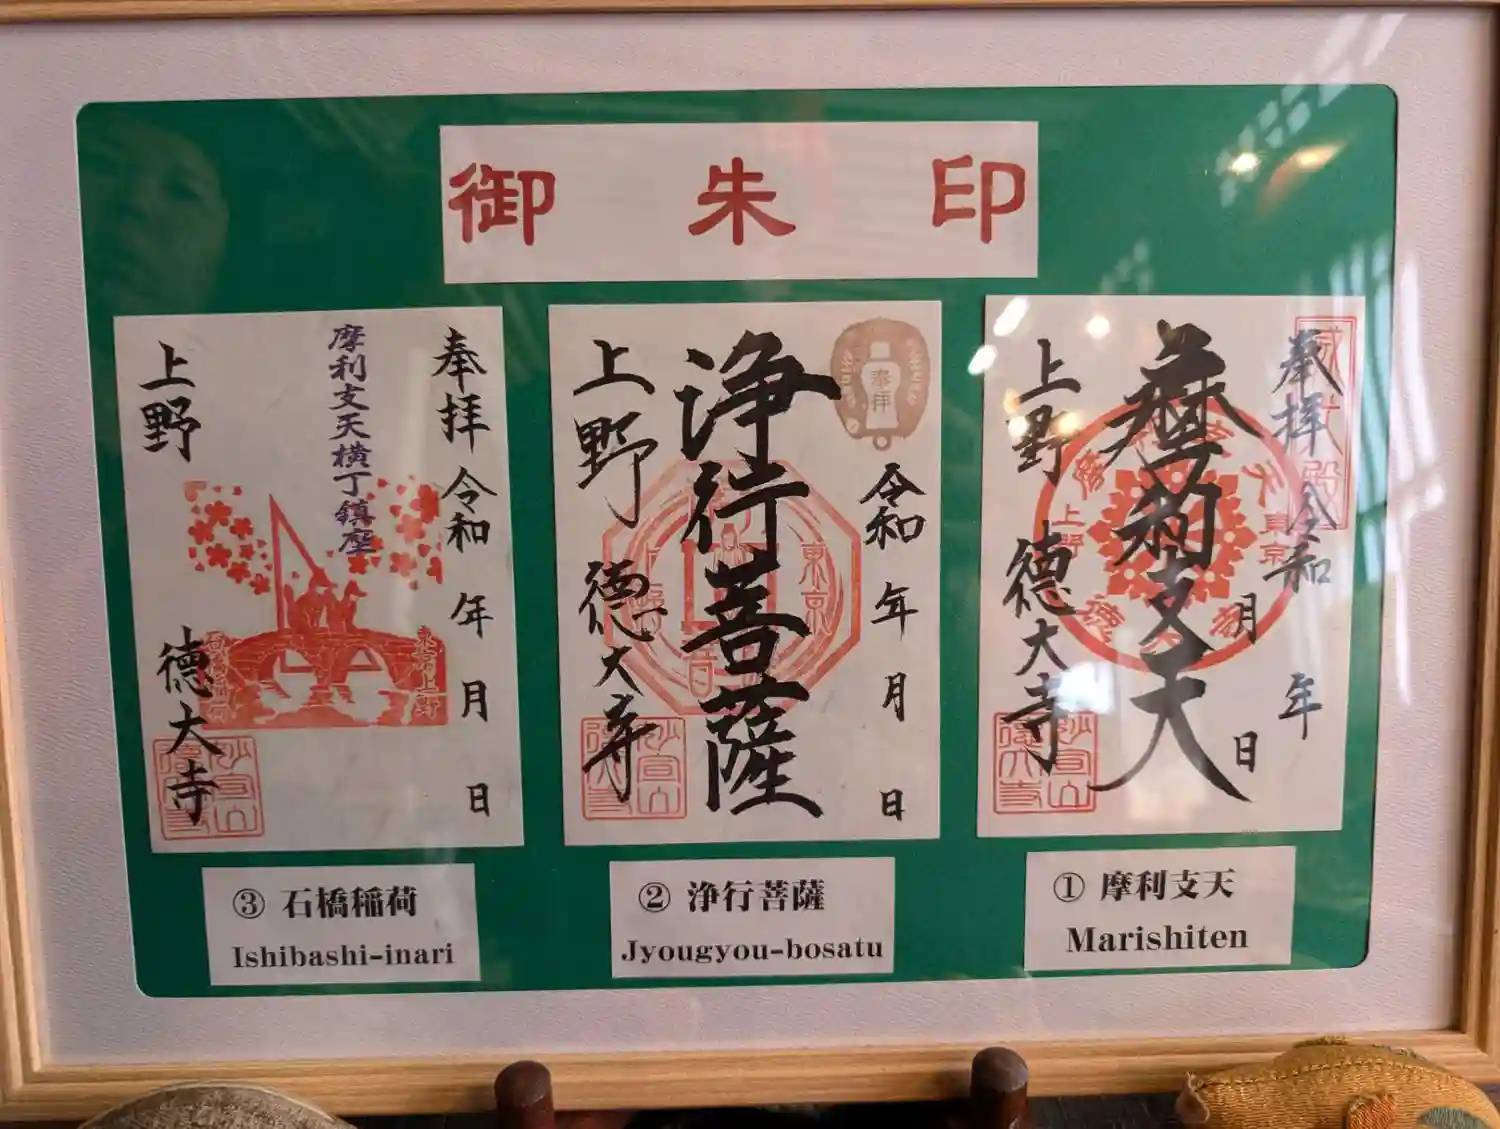 御朱印
奉拝 令和 年 月 日
摩利支天
上野 徳大寺
① 摩利支天
Marishiten
奉拝
令和 年 月 日
浄行菩薩
東京
上野 徳大寺
② 浄行菩薩
Jyougyou-bosatu
奉拝 令和 年 月 日
摩利支天横丁鎮座
東京上野
上野 徳大寺
③ 石橋稲荷
Ishibashi-inari